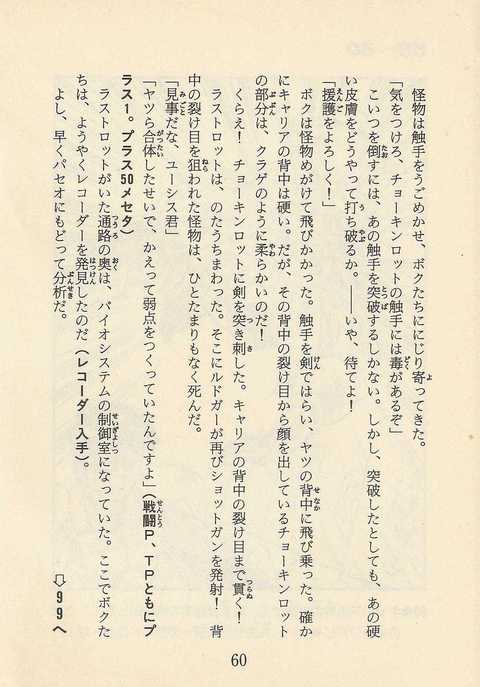 怪物は触手をうごめかせ、ボクたちににじり寄ってきた。
「気をつけろ、チョーキンロットの触手には毒があるぞ」
　こいつを倒すには、あの触手を突破するしかない。しかし、突破したとしても、あの硬
い皮膚をどうやって打ち破るか。――いや、待てよ！
「援護をよろしく！」
　ボクは怪物めがけて飛びかかった。触手を剣ではらい、ヤツの背中に飛び乗った。確か
にキャリアの背中は硬い。だが、その背中の裂け目から顔を出しているチョーキンロット
の部分は、クラゲのように柔らかいのだ！
　くらえ！　チョーキンロットに剣を突き刺した。キャリアの背中の裂け目まで貫く！
　ラストロットは、のたうちまわった。そこにルドガーが再びショットガンを発射！　背
中の裂け目を狙われた怪物は、ひとたまりもなく死んだ。
「見事だな、ユーシス君」
「ヤツら合体したせいで、かえって弱点をつくっていたんですよ」（戦闘Ｐ、ＴＰともにプ
ラス１。プラス50メセタ）
　ラストロットがいた通路の奥は、バイオシステムの制御室になっていた。ここでボクた
ちは、ようやくレコーダーを発見したのだ（レコーダー入手）。
　よし、早くパセオにもどって分析だ。
⇨９９へ
60